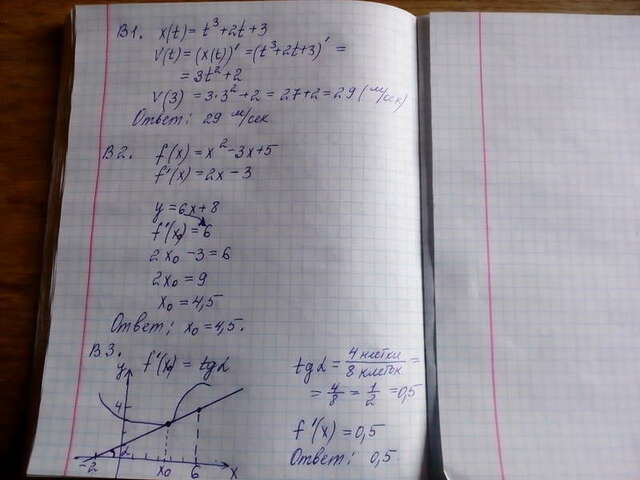 В1. x(t) = t³+2t+3
V(t) = (x(t))' = (t³+2t+3)' =
= 3t²+2
V(3) = 3·3²+2 = 27+2 = 29 (м/сек)
Ответ: 29 м/сек
В2. f(x) = x²-3x+5
f'(x) = 2x-3
y = 6x+8
f'(x₀) = 6
2x₀ -3 = 6
2x₀ = 9
x₀ = 4,5
Ответ: x₀ = 4,5.
В3.
f'(x₀) = tgα
y
4
α
-2 x₀ 6 x
tgα = 4 клетки / 8 клеток =
= 4/8 = 1/2 = 0,5
f'(x) = 0,5
Ответ: 0,5.